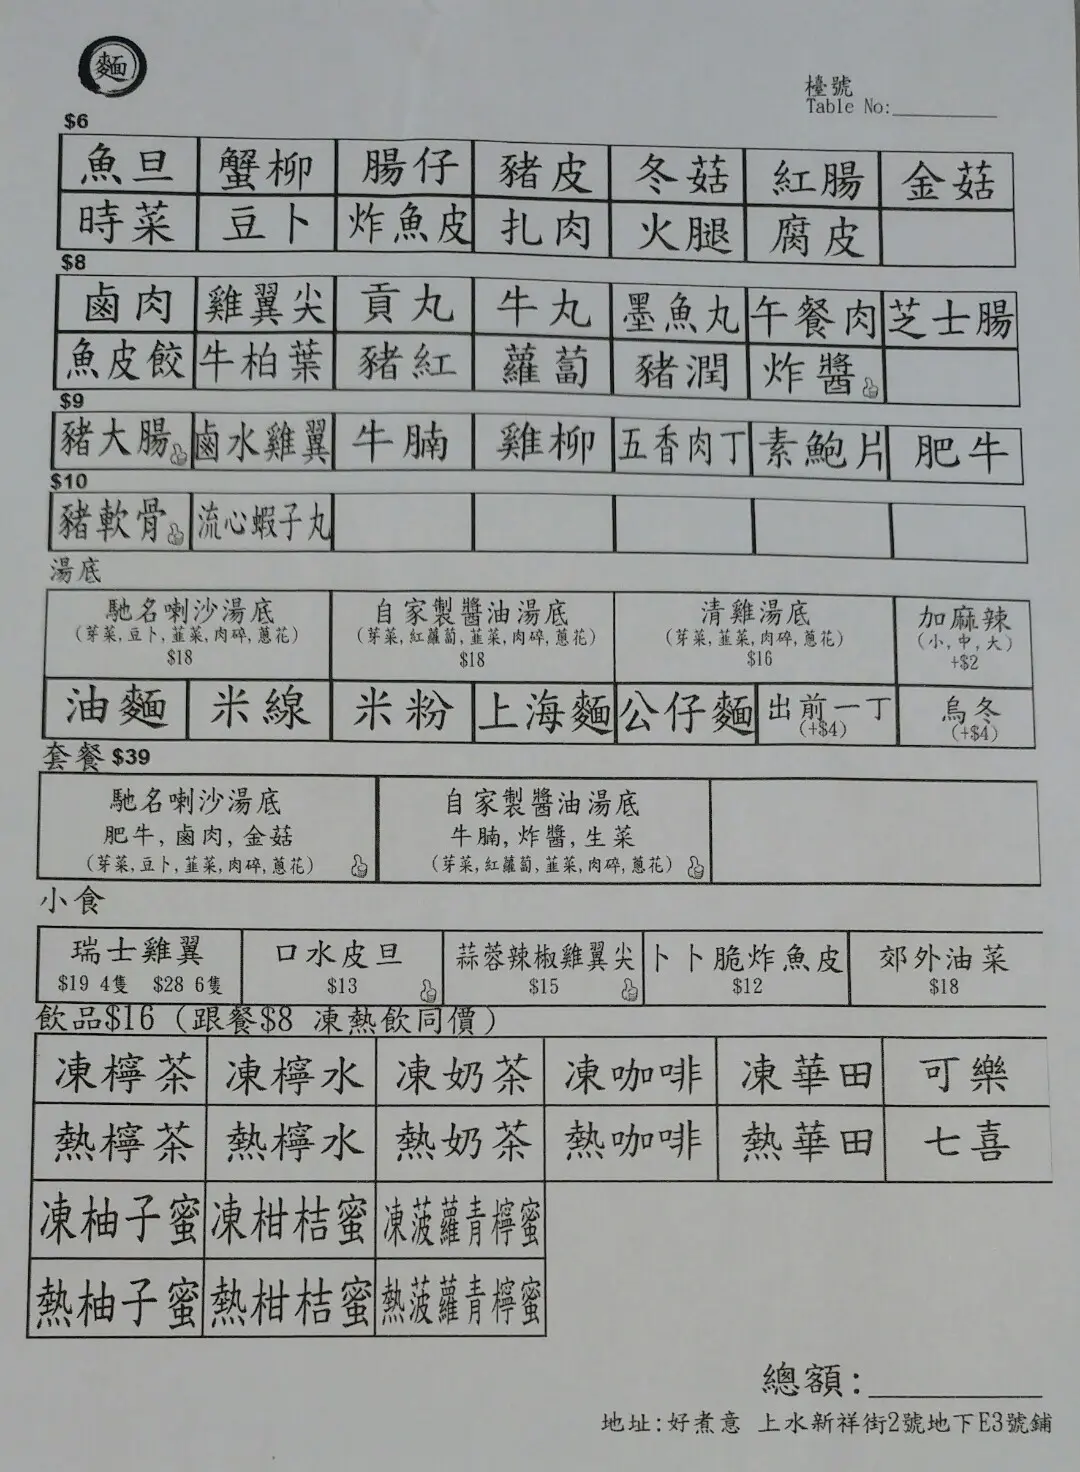 麵
檯號
Table No:
$6
魚旦 蟹柳 腸仔 豬皮 冬菇 紅腸 金菇
時菜 豆卜 炸魚皮 扎肉 火腿 腐皮
$8
鹵肉 雞翼尖 貢丸 牛丸 墨魚丸 午餐肉 芝士腸
魚皮餃 牛柏葉 豬紅 蘿蔔 豬潤 炸醬
$9
豬大腸 鹵水雞翼 牛腩 雞柳 五香肉丁 素鮑片 肥牛
$10
豬軟骨 流心蝦子丸
湯底
馳名喇沙湯底 自家製醬油湯底 清雞湯底 加麻辣
(芽菜,豆卜,韮菜,肉碎,蔥花) (芽菜,紅蘿蔔,韮菜,肉碎,蔥花) (芽菜,韮菜,肉碎,蔥花) (小,中,大)
$18 $18 $16 +$2
油麵 米線 米粉 上海麵 公仔麵 出前一丁 烏冬
(+$4) (+$4)
套餐 $39
馳名喇沙湯底 自家製醬油湯底
肥牛,鹵肉,金菇 牛腩,炸醬,生菜
(芽菜,豆卜,韮菜,肉碎,蔥花) (芽菜,紅蘿蔔,韮菜,肉碎,蔥花)
小食
瑞士雞翼 口水皮旦 蒜蓉辣椒雞翼尖 卜卜脆炸魚皮 郊外油菜
$19 4隻 $28 6隻 $13 $15 $12 $18
飲品$16 (跟餐$8 凍熱飲同價)
凍檸茶 凍檸水 凍奶茶 凍咖啡 凍華田 可樂
熱檸茶 熱檸水 熱奶茶 熱咖啡 熱華田 七喜
凍柚子蜜 凍柑桔蜜 凍菠蘿青檸蜜
熱柚子蜜 熱柑桔蜜 熱菠蘿青檸蜜
總額:
地址:好煮意 上水新祥街2號地下E3號鋪